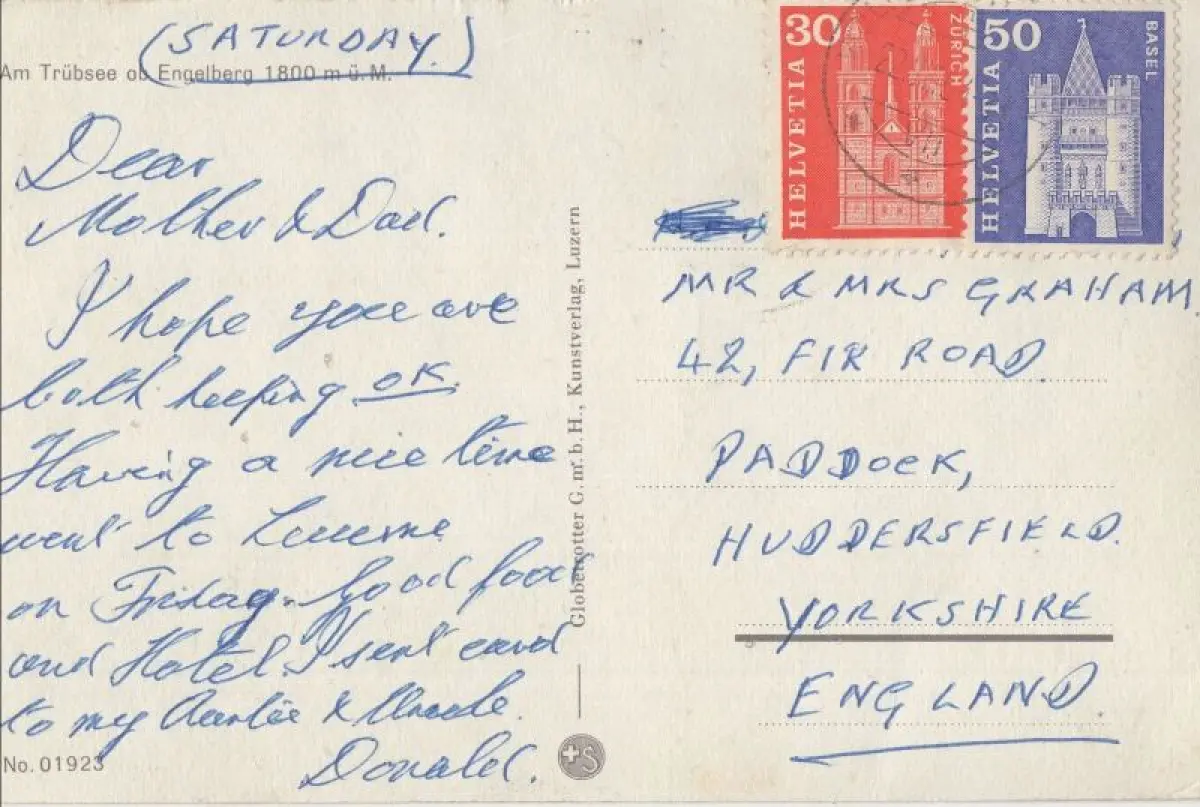 (SATURDAY.)
Am Trübsee ob Engelberg 1800 m ü. M.
Dear
Mother & Dad.
I hope you are
both keeping OK.
Having a nice time
went to Lucerne
on Friday. Good food
and Hotel. I sent card
to my Auntie & Uncle.
Donald.
No. 01923
Globetrotter G. m. b. H., Kunstverlag, Luzern
30
HELVETIA
ZÜRICH
50
HELVETIA
BASEL
MR & MRS GRAHAM.
42, FIR ROAD
PADDOCK,
HUDDERSFIELD.
YORKSHIRE
ENGLAND.